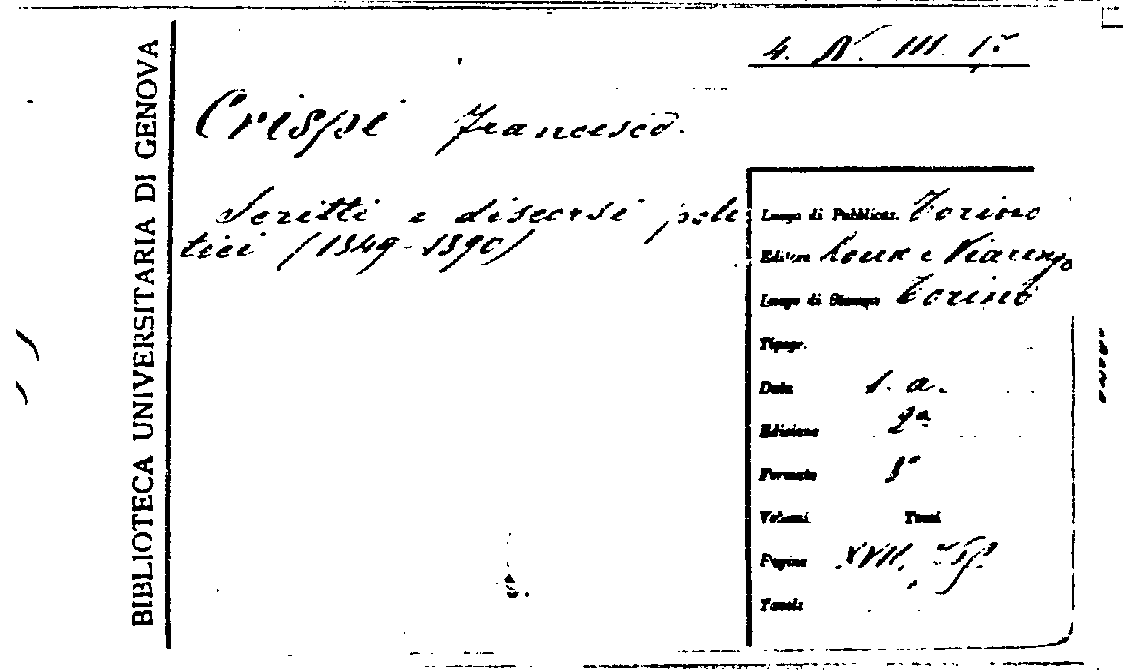 BIBLIOTECA UNIVERSITARIA DI GENOVA
4. N. III.
Crispi Francesco.
Scritti e discorsi poli
tici (1849-1890)
Luogo di Pubblicaz. Torino
Editore Roux e Viarengo
Luogo di Stampa Torino
Tipogr.
Data s. a.
Edizione 2ª
Formato 8°
Volumi Tomi
Pagine XVII,
Tavole